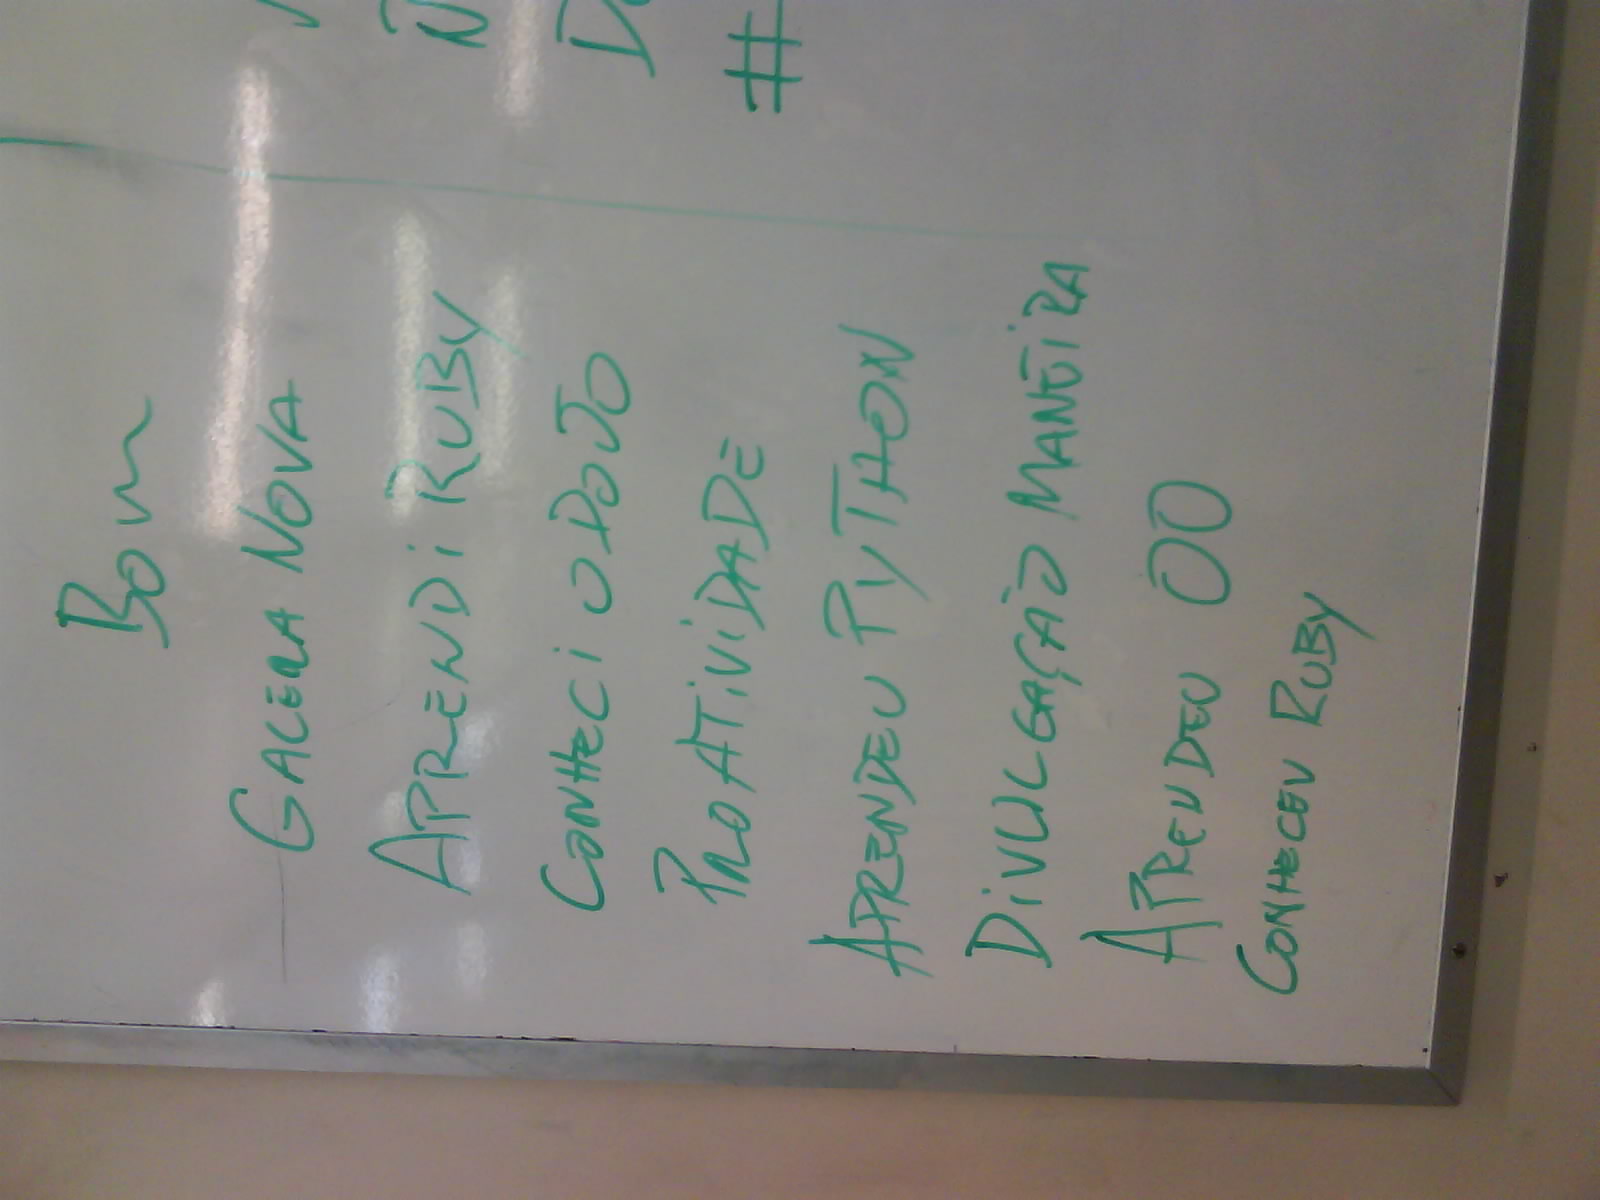 Bom
GALERA NOVA
APRENDI RUBY
CONHECI O DOJO
PROATIVIDADE
APRENDEU PYTHON
DIVULGAÇÃO MANEIRA
APRENDEU OO
CONHECEU RUBY
#